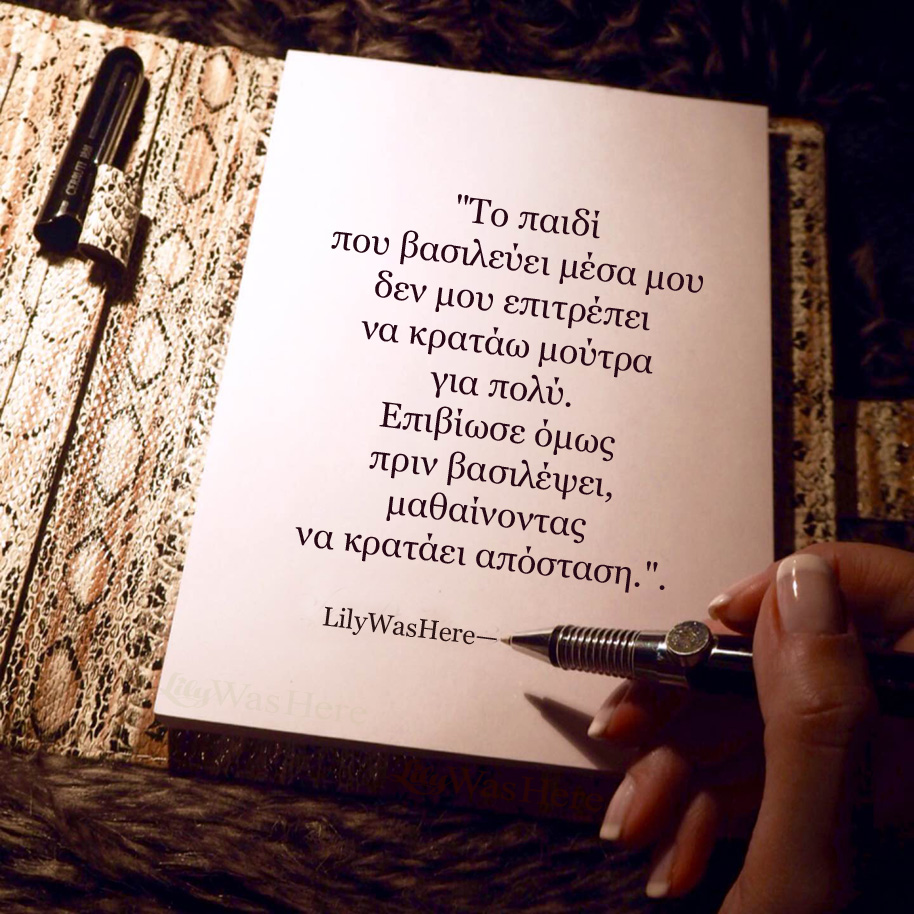 CERRUTI 1881
"Το παιδί
που βασιλεύει μέσα μου
δεν μου επιτρέπει
να κρατάω μούτρα
για πολύ.
Επιβίωσε όμως
πριν βασιλέψει,
μαθαίνοντας
να κρατάει απόσταση.".
LilyWasHere—
LilyWasHere
LilyWasHere